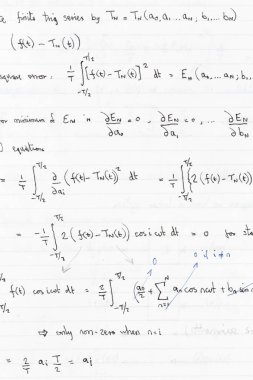 a finite trig series by T_N = T_N(a_0, a_1 ... a_N, b_1 ... b_N)
(f(t) - T_N(t))
square error: 1/T ∫_{-T/2}^{T/2} [f(t) - T_N(t)]^2 dt = E_N(a_0, ... a_N; b_1 ...
or minimum of E_N is ∂E_N/∂a_0 = 0, ∂E_N/∂a_1 = 0, ... ∂E_N/∂b_N
equations
= 1/T ∫_{-T/2}^{T/2} ∂/∂a_i (f(t) - T_N(t))^2 dt = 1/T ∫_{-T/2}^{T/2} {2 (f(t) - T_N(t))
= -1/T ∫_{-T/2}^{T/2} 2 (f(t) - T_N(t)) cos iωt dt = 0 for
0 0 if i≠n
f(t) cos iωt dt = 2/T ∫_{-T/2}^{T/2} (a_0/2 + ∑_{n=1}^{N} a_n cos nωt + b_n sin
⇒ only non-zero when n=i
= 2/T a_i T/2 = a_i